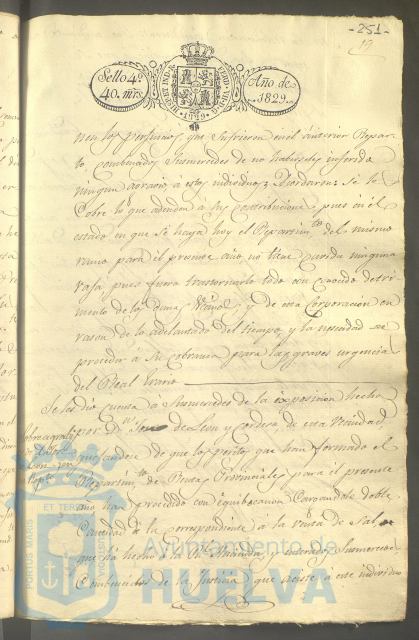 -251-
Sello 4º
40. mrs.
Año de
1829.
nen los perjuicios que sufrieron en el anterior Repar-
to combencidos Sumercedes de no haberseles inferido
ningun agravio a estos individuos; Acordaron: Se les
Cobre lo que adeudan a sus contribuciones, pues en el
estado en que se haya hoy el Repartimto del mismo
ramo para el presente año no tiene cavida ninguna
vaja pues fuera trastornarlo todo con conocido detri-
mento de los demas Vecinos, y de esta Corporacion en
razon de lo adelantado del tiempo, y la necesidad de
proceder a su cobranza para las graves urgencias
del Real Erario
Se les dio cuenta a Sumercedes de la exposicion hecha
por Dn de Leon y Cordero de esta Vecindad,
quejandose de que los peritos que han formado el
Repartimto de Rentas Provinciales para el presente
año han procedido con equibocacion Cargandole doble
Cantidad a la correspondiente a la venta de Sal
que ha hecho a la Rl Hacienda, y enterados Sumercedes
Combencidos de la Justicia que asiste a este individuo
PORTUS MARIS ET TERRAE
Ayuntamiento de
HUELVA